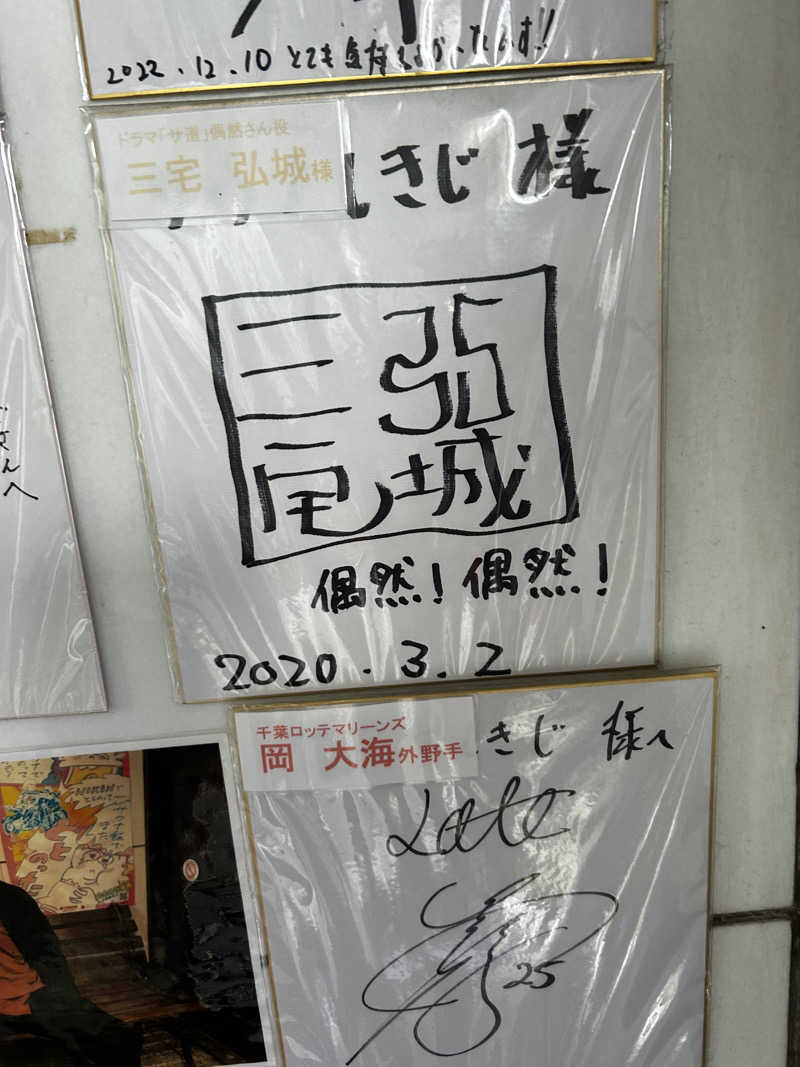 2022.12.10 とても気持ちよかったです!!
ドラマ「サ道」偶然さん役
三宅 弘城様
しきじ 様
三宅
弘城
偶然! 偶然!
2020.3.2
千葉ロッテマリーンズ
岡 大海外野手
きじ 様へ
Lotte
25